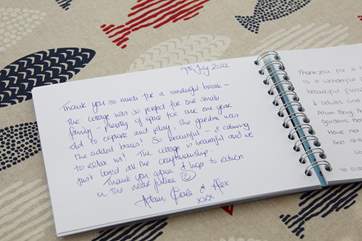 9th July 2012
Thank you so much for a wonderful break -
The cottage was so perfect for our small
family - plenty of space for our one year
old to explore and play - the garden was
the added bonus! So beautiful - & calming
to relax in! The cottage is beautiful and we
just loved all the craftsmanship.
Thank you again & hope to return
in the near future
Adam & Alex
xxx
Thank you for a
is a wonderful
beautiful